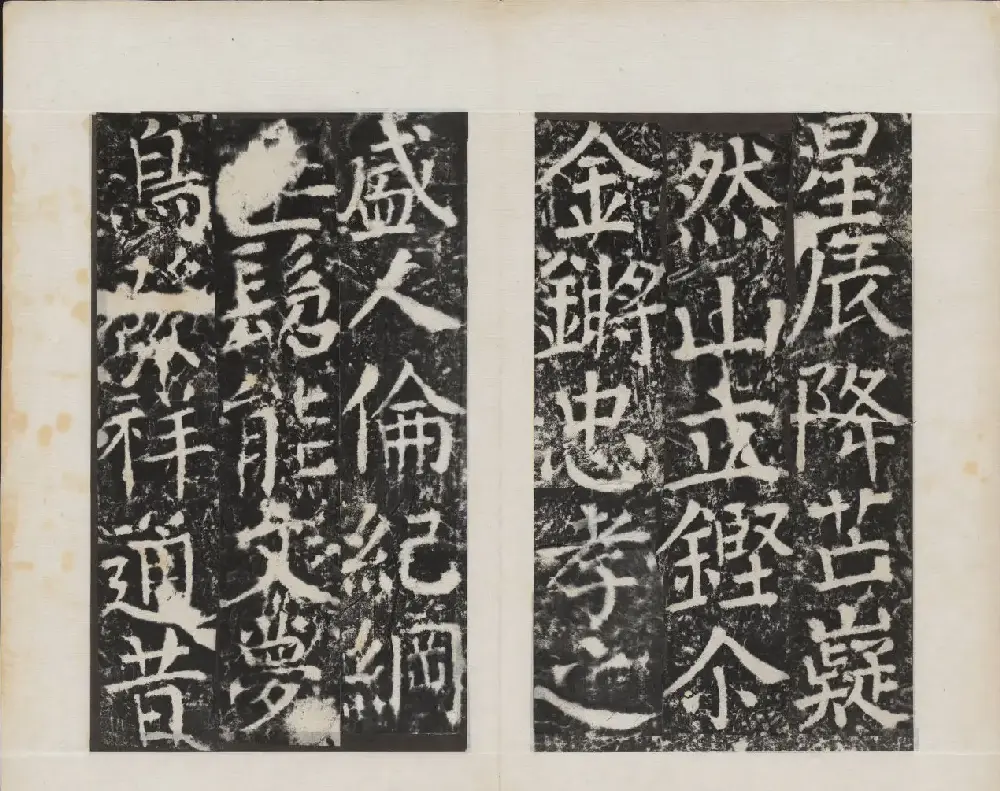 星辰降芒嶷
然山立鏗尒
金鏘忠孝之
盛人倫紀綱
髫能文夢
鳥祥道昔